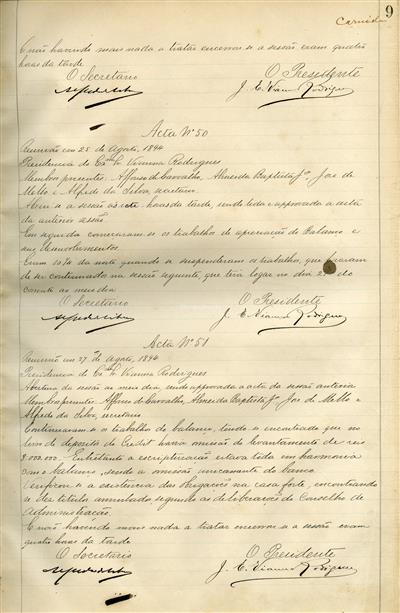 9
E não havendo mais nada a tratar encerrou-se a sessão eram quatro
horas da tarde
O Secretario
O Presidente
J. C. Vianna Rodrigues
Acta Nº 50
Reunião em 25 de Agosto, 1894
Presidencia do Exmo Sr Vianna Roderigues
Membros presentes: Affonso de Carvalho, Almeida Baptista Jor, Jose de
Mello e Alfredo da Silva, secretario.
Abriu-se a sessão ás horas da tarde, sendo lida e approvada a acta
da anterior sessão.
Em seguida começaram-se os trabalhos de apreciação do Balanço e
seus desenvolvimentos.
Eram 10 ½ da noite quando se suspenderam os trabalhos, que ficaram
de ser continuados na sessão seguinte, que terá logar no dia 27 do
corrente ao meio dia
O Secretario
O Presidente
J. C. Vianna Rodrigues
Acta Nº 51
Reunião em 27 de Agosto, 1894
Presidencia do Exmo Sr Vianna Roderigues
Abertura da sessão ao meio dia, sendo approvada a acta da sessão anterior
Membros presentes: Affonso de Carvalho, Almeida Baptista Jor, Jose de Mello e
Alfredo da Silva, secretario
Continuaram-se os trabalhos de balanço, tendo-se encontrado que no
livro de deposito do Credit havia omissão do levantamento de reis
8.000.000. Entretanto a escripturação estava toda em harmonia
com o balanço, sendo a omissão unicamente do banco
Verificou-se a existencia das obrigações na casa forte, encontrando
se dez titulos annulados, segundo as deliberações do Conselho de
Administração.
E não havendo mais nada a tratar encerrou-se a sessão eram
quatro horas da tarde
O Secretario
O Presidente
J. C. Vianna Rodrigues